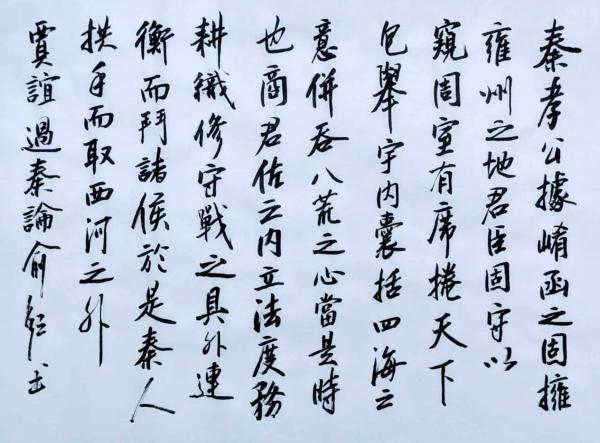 秦孝公據崤函之固擁
雍州之地君臣固守以
窺周室有席捲天下
包舉宇内囊括四海之
意併吞八荒之心當是時
也商君佐之内立法度務
耕織修守戰之具外連
衡而鬥諸侯於是秦人
拱手而取西河之外
賈誼過秦論俞书